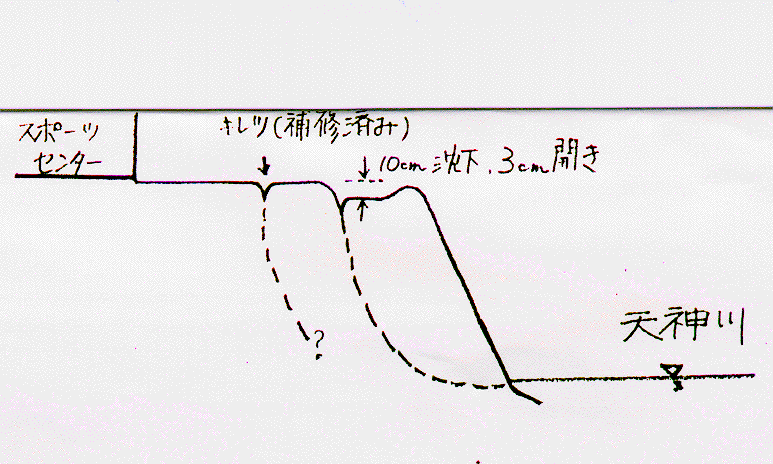 スポーツ
センター
キレツ(補修済み)
10cm沈下、3cm開き
?
天神川